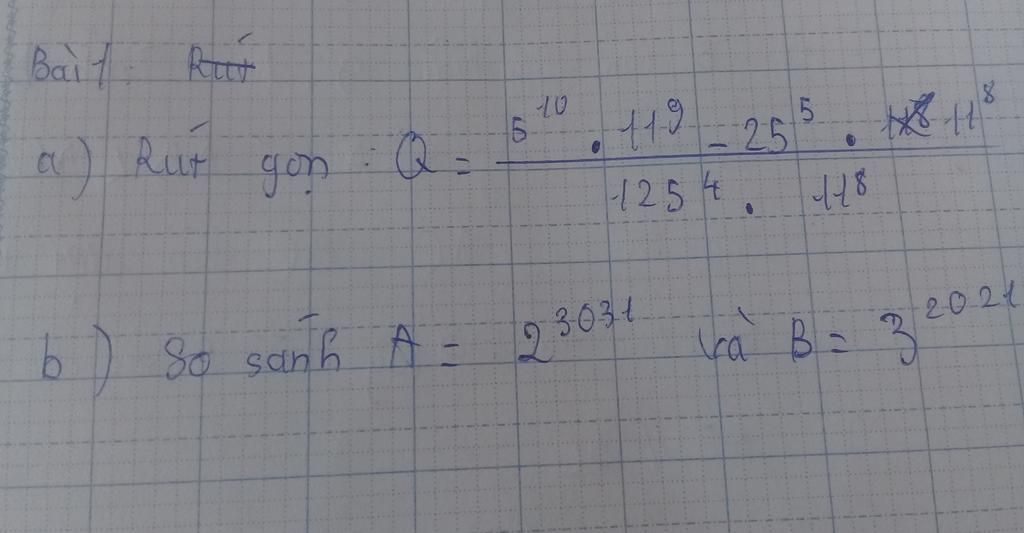 Bài 1: Rút
a) Rút gọn: Q = \frac{5^{10} . 11^9 - 25^5 . 11^8}{125^4 . 11^8}
b) So sánh A = 2^{3031} và B = 3^{2021}